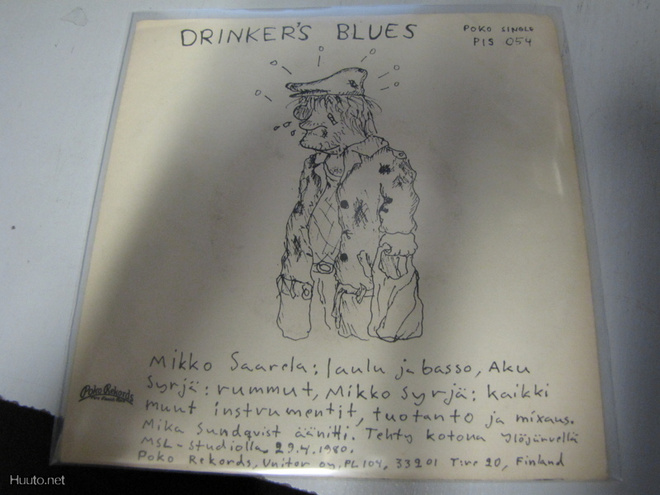 DRINKER'S BLUES
POKO SINGLE
PIS 054
Mikko Saarela: laulu ja basso, Aku
Syrjä: rummut, Mikko Syrjä: kaikki
muut instrumentit, tuotanto ja mixaus.
Mika Sundqvist äänitti. Tehty kotona Ylöjärvellä
MSL-studiolla 29.4.1980.
Poko Rekords, Unitor oy. PL 104, 33201 T:re 20, Finland
Poko Rekords
Huuto.net